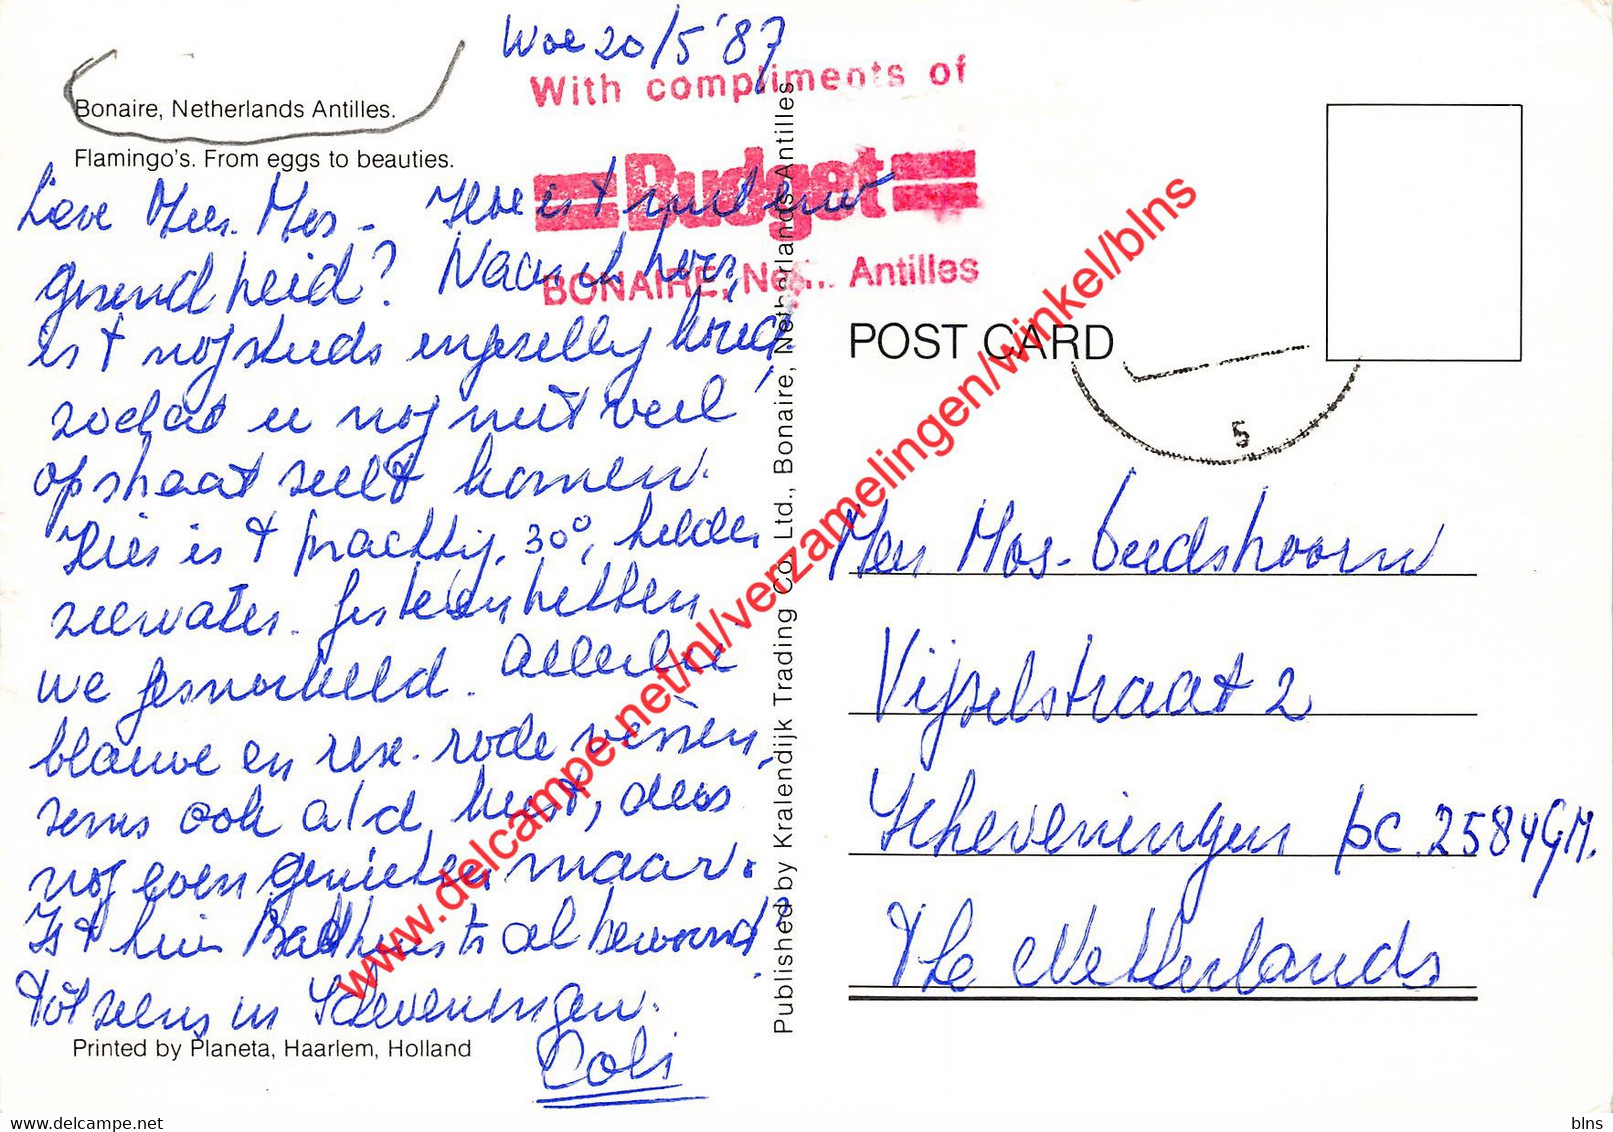 Woe 20/5 '87
With compliments of
Budget
BONAIRE, Ne... Antilles
Bonaire, Netherlands Antilles.
Flamingo's. From eggs to beauties.
Lieve Mevr. Mos - Hoe is 't met uw
gezondheid? Naar ik hoor,
is 't nog steeds ongezellig koud,
zodat u nog niet veel
op straat zult komen.
Hier is 't prachtig, 30°, helder
zeewater. Gisteren hebben
we gesnorkeld. Allerlei
blauwe en rose-rode vissen,
ook a/d kust, dus
nog even genieten maar.
Is 't huis Badhuisstr al bewoond
Tot ziens in Scheveningen.
Coli
Printed by Planeta, Haarlem, Holland
Published by Kralendijk Trading Co. Ltd., Bonaire, Netherlands Antilles
POST CARD
5
Mevr Mos-
Vijzelstraat 2
Scheveningen pc. 2584GM.
The Netherlands
www.delcampe.net/nl/verzamelingen/winkel/blns
www.delcampe.net/nl/verzamelingen/winkel/blns
blns